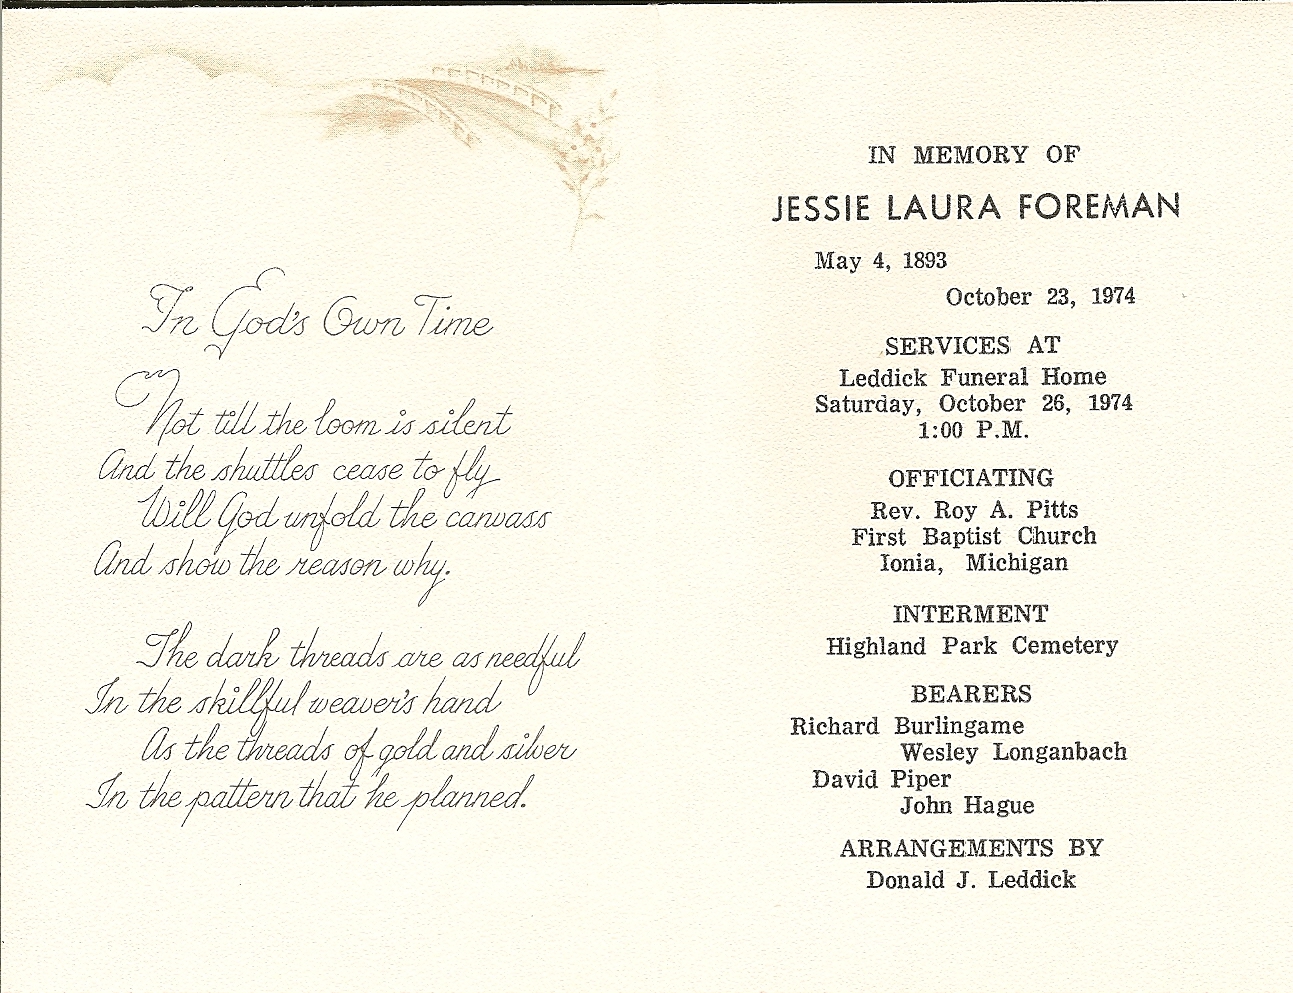 In God's Own Time
Not till the loom is silent
And the shuttles cease to fly
Will God unfold the canvass
And show the reason why.
The dark threads are as needful
In the skillful weaver's hand
As the threads of gold and silver
In the pattern that he planned.
IN MEMORY OF
JESSIE LAURA FOREMAN
May 4, 1893
October 23, 1974
SERVICES AT
Leddick Funeral Home
Saturday, October 26, 1974
1:00 P.M.
OFFICIATING
Rev. Roy A. Pitts
First Baptist Church
Ionia, Michigan
INTERMENT
Highland Park Cemetery
BEARERS
Richard Burlingame
Wesley Longanbach
David Piper
John Hague
ARRANGEMENTS BY
Donald J. Leddick